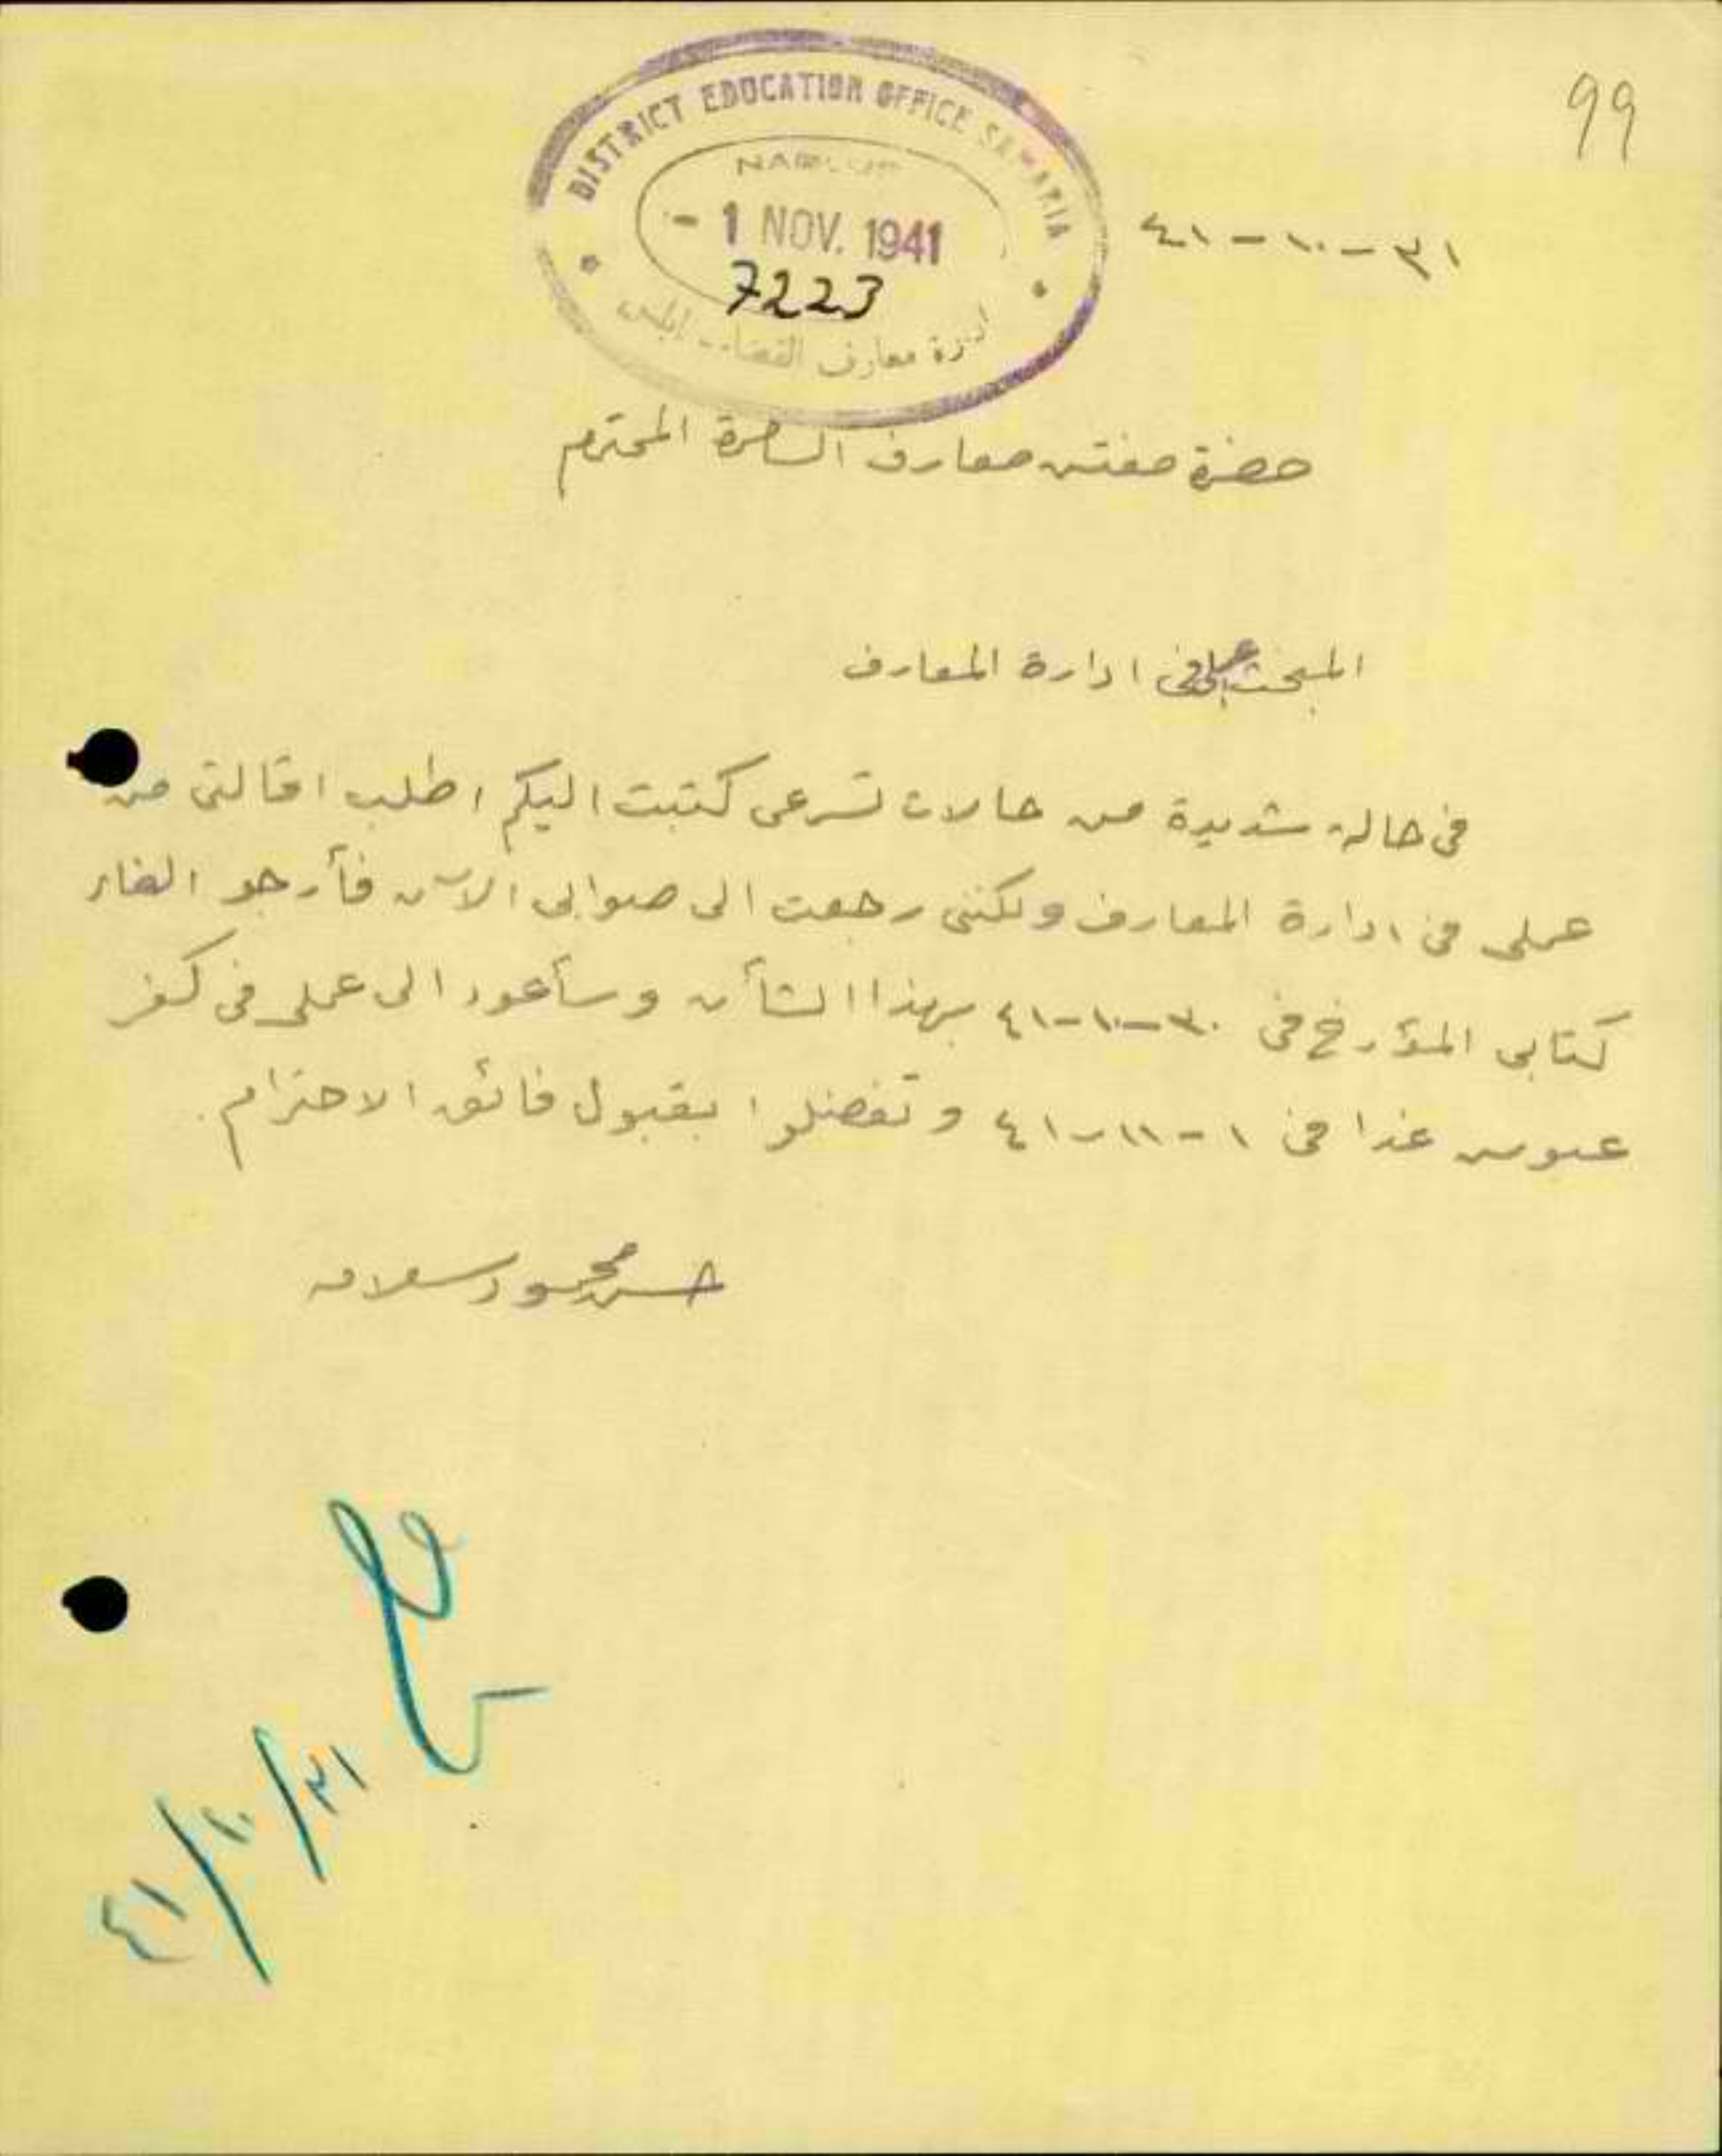 99
DISTRICT EDUCATION OFFICE SAMARIA
NABLUS
- 1 NOV. 1941
7223
ادارة معارف القضاء نابلس
٣١-١٠-٤١
حضرة مفتش معارف السامرة المحترم
المبحث عملي في ادارة المعارف
في حالة شديدة من حالات تسرعي كتبت اليكم اطلب اقالتي من
عملي في ادارة المعارف ولكني رجعت الى صوابي الآن فأرجو الغاء
كتابي المؤرخ في ٣٠-١٠-٤١ بهذا الشأن وسأعود الى عملي في كفر
عبوس غدا في ١-١١-٤١ وتفضلوا بقبول فائق الاحترام.
حسن محمود سلامه
٣١/١٠/٤١